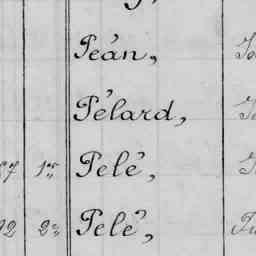 Péan,
Pélard,
1er Pelé,
2e Pelé,